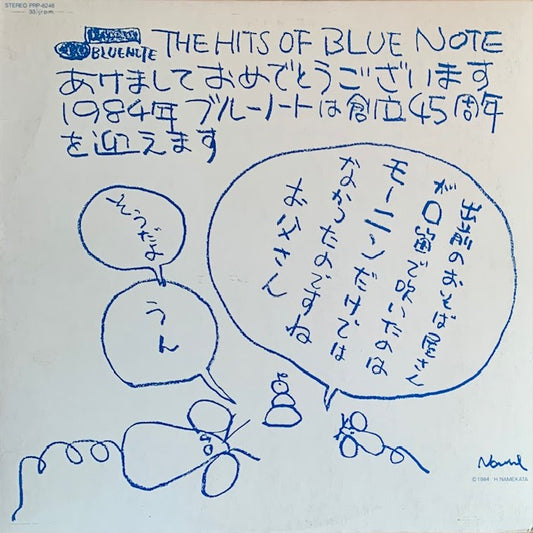 STEREO PRP-8248
33⅓r.p.m.
BLUENOTE
THE HITS OF BLUE NOTE
あけましておめでとうございます
1984年ブルーノートは創立45周年
を迎えます
出前のおそば屋さん
が口笛で吹いたのは
モーニンだけでは
なかったのですね
お父さん
そうだよ
うん
©1984 H NAMEKATA